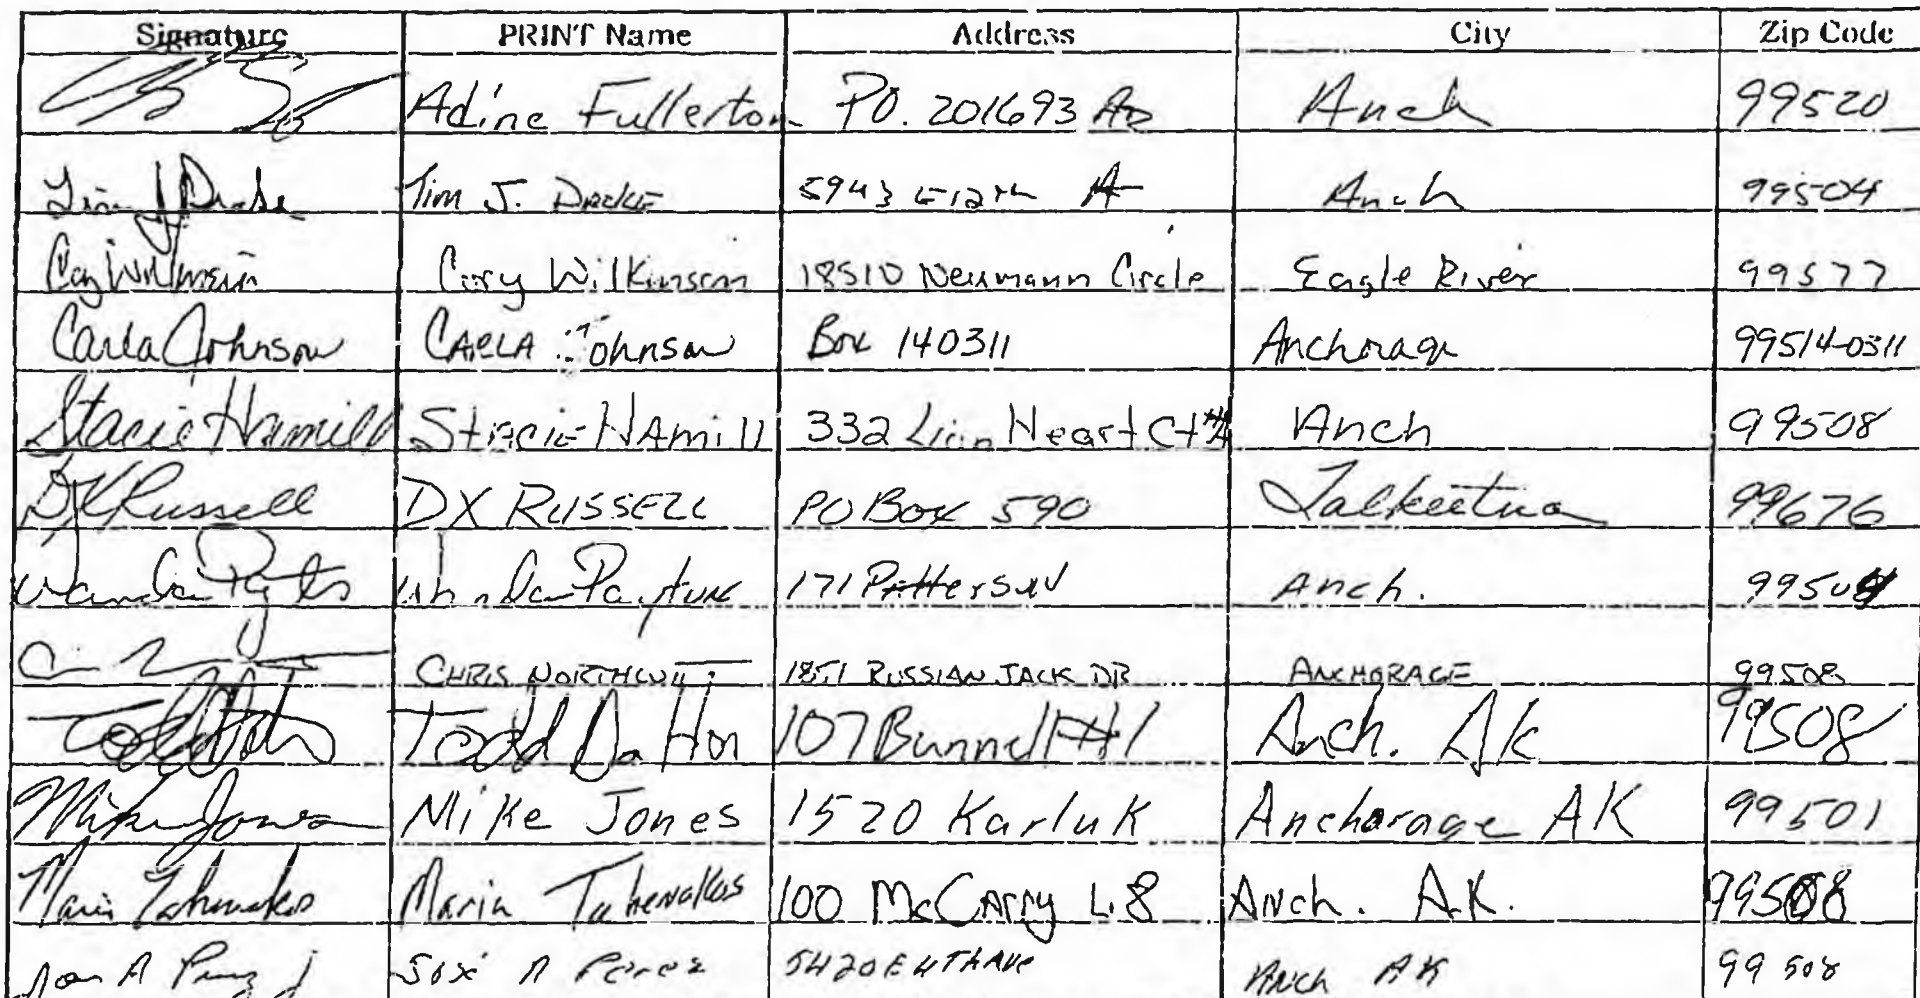 Signature PRINT Name Address City Zip Code
Adine Fullerton P.O. 201693 Anch 99520
Tim J. Drake Tim J. DRAKE 5943 E 12th A Anch 99504
Cory Wilkinson Cory Wilkinson 18510 Neumann Circle Eagle River 99577
Carla Johnson CARLA Johnson Box 140311 Anchorage 99514-0311
Stacie Hamill Stacie HAmill 332 Lion Heart Ct Anch 99508
DK Russell DX RUSSELL PO Box 590 Talkeetna 99676
Wanda 171 Patterson Anch. 99504
CHRIS NORTHCUTT 1851 RUSSIAN JACK DR ANCHORAGE 99508
Todd Dalton 107 Bunnell #1 Anch. Ak 99508
Mike Jones Mike Jones 1520 Karluk Anchorage AK 99501
Maria Maria 100 McCarry L8 Anch. AK. 99508
A Perez 5420 E 4TH AVE Anch AK 99508